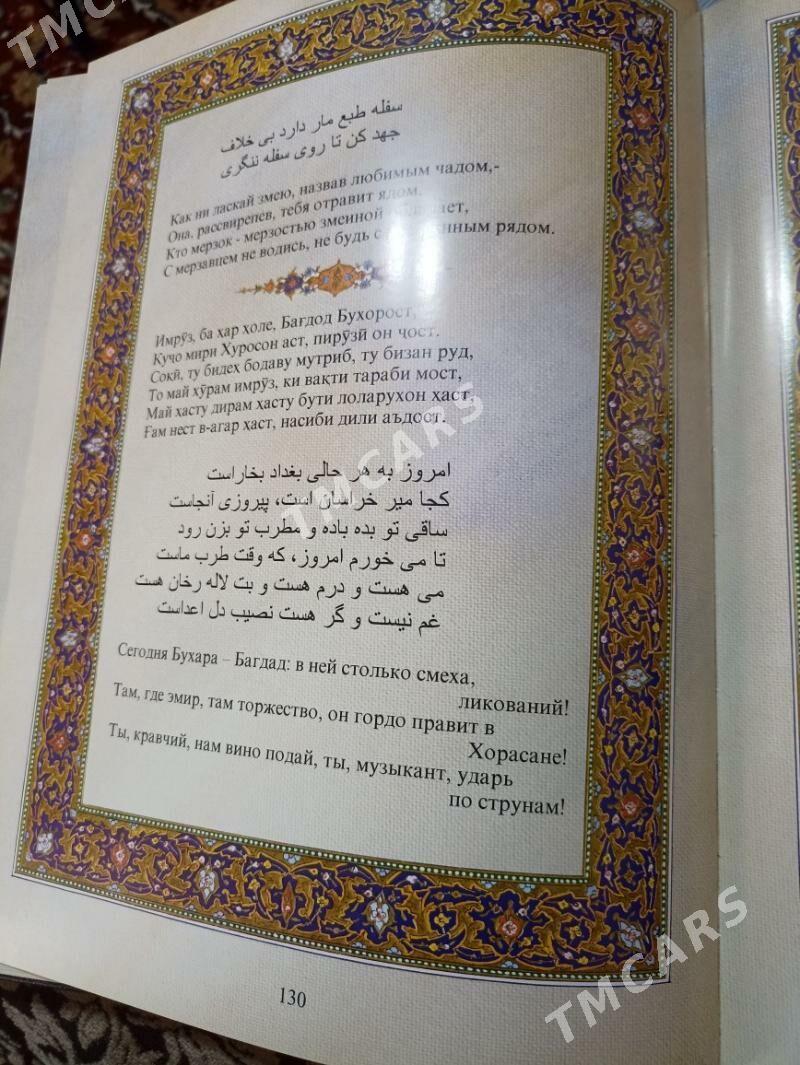 سفله طبع مار دارد بی خلاف
جهد کن تا روی سفله ننگری
Как ни ласкай змею, назвав любимым чадом,-
Она, рассвирепев, тебя отравит ядом.
Кто мерзок - мерзостью змеиной
С мерзавцем не водись, не будь с рядом.
Имрӯз, ба ҳар ҳоле, Бағдод Бухорост,
Куҷо мири Хуросон аст, пирӯзӣ он ҷост.
Соқӣ, ту бидеҳ бодаву мутриб, ту бизан руд,
То май хӯрам имрӯз, ки вақти тараби мост,
Май ҳасту дирам ҳасту бути лоларухон ҳаст,
Ғам нест в-агар ҳаст, насиби дили аъдост.
امروز به هر حالی بغداد بخاراست
کجا میر خراسان است، پیروزی آنجاست
ساقی تو بده باده و مطرب تو بزن رود
تا می خورم امروز، که وقت طرب ماست
می هست و درم هست و بت لاله رخان هست
غم نیست و گر هست نصیب دل اعداست
Сегодня Бухара – Багдад: в ней столько смеха,
ликований!
Там, где эмир, там торжество, он гордо правит в
Хорасане!
Ты, кравчий, нам вино подай, ты, музыкант, ударь
по струнам!
130
TMCARS
TMCARS
TMCARS